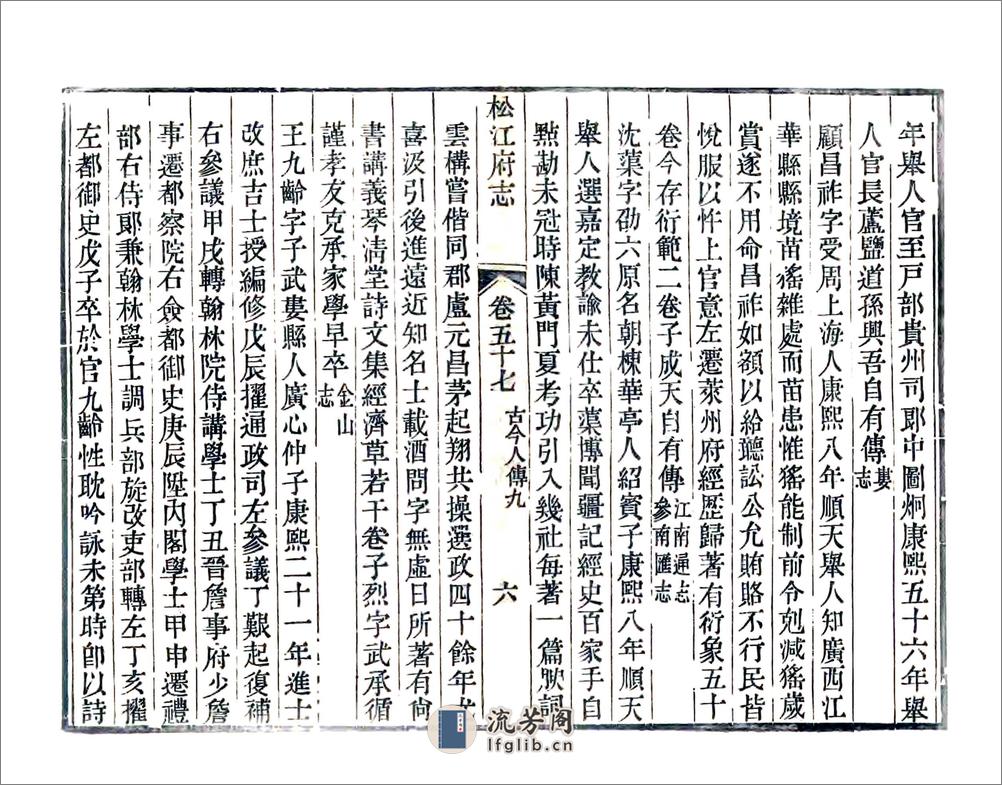 年舉人官至戸部貴州司郎中圖炯康熙五十六年舉
人官長蘆鹽道孫興吾自有傳婁志
顧昌祚字受周上海人康熙八年順天舉人知廣西江
華縣縣境苗猺雜處而苗患惟猺能制前令剋減猺歲
賞遂不用命昌祚如額以給聽訟公允賄賂不行民皆
悅服以忤上官意左遷萊州府經歷歸著有衍象五十
卷今存衍範二卷子成天自有傳江南通志參南匯志
沈蕖字劭六原名朝棟華亭人紹賓子康熙八年順天
舉人選嘉定教諭未仕卒蕖博聞疆記經史百家手自
點勘未冠時陳黃門夏考功引入幾社每著一篇歎詞
松江府志 卷五十七 古今人傳九 六
雲構嘗偕同郡盧元昌茅起翔共操選政四十餘年尤
喜汲引後進遠近知名士載酒問字無虛日所著有尙
書講義琴淸堂詩文集經濟草若干卷子烈字武承循
謹孝友克承家學早卒金山志
王九齡字子武婁縣人廣心仲子康熙二十一年進士
改庶吉士授編修戊辰擢通政司左參議丁艱起復補
右參議甲戌轉翰林院侍講學士丁丑晉詹事府少詹
事遷都察院右僉都御史庚辰陞內閣學士甲申遷禮
部右侍郞兼翰林學士調兵部旋改吏部轉左丁亥擢
左都御史戊子卒於官九齡性耽吟詠未第時卽以詩
流芳阁
lfglib.cn